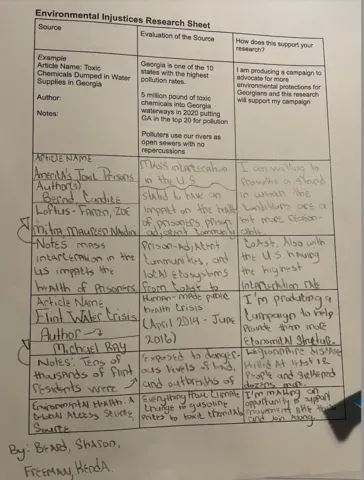 Environmental Injustices Research Sheet
Source
Evaluation of the Source
How does this support your
research?
Example
Article Name: Toxic
Chemicals Dumped in Water
Supplies in Georgia
Author:
Notes:
Georgia is one of the 10
states with the highest
pollution rates.
5 million pound of toxic
chemicals into Georgia
waterways in 2020 putting
GA in the top 20 for pollution
Polluters use our rivers as
open sewers with no
repercussions
I am producing a campaign to
advocate for more
environmental protections for
Georgians and this research
will support my campaign
Article Name
America's Toxic Prisons
Author(s)
Bernd, Candice
Loftus-Farren, Zoe
Mitra, Maureen Nadin
Notes mass
incarceration in the
US impacts the
health of Prisoners,
Mass incarceration
in the U.S
stated to have an
impact on the health
of prisoners, prison
adjacent community
Prison-Adjacent
Communities, and
local Ecosystems
From Coast to
I am willing to
a stand
in which the
conditions are a
bit more reason-
able.
Coast. Also with
the U.S having
the highest
incarceration rate
Article Name
Flint Water Crisis
Author
Michael Ray
Notes: Tens of
thousands of Flint
residents were
Human-made public
health Crisis
(April 2014 - June
2016)
Exposed to danger-
ous levels of lead,
and outbreaks of
I'm producing a
Campaign to help
Provide than more
Economical structure.
Legionnaire disease
killed at least 12
People and sickened
dozens more.
Environmental Health: A
Global Access Science
Source
Everything from Climate
change to gasoline
to toxic chemicals
I'm making an
opportunity to support
movement like these
and join along.
By: Beard, Sharon,
Freeman, Kenda.